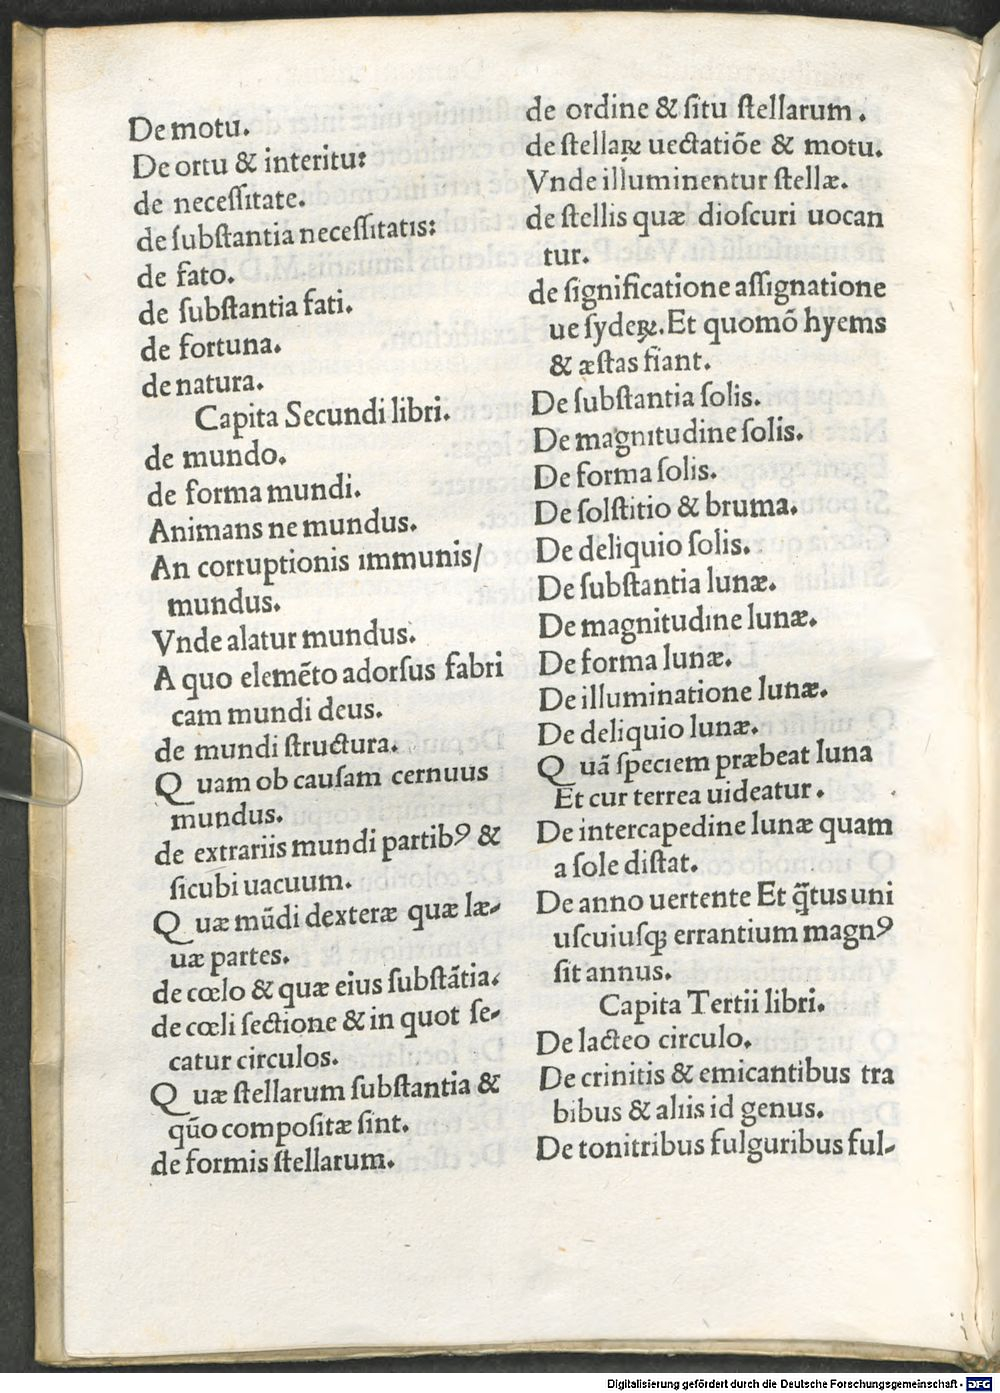 De motu.
De ortu & interitu:
de neceſſitate.
de ſubſtantia neceſſitatis:
de fato.
de ſubſtantia fati.
de fortuna.
de natura.
Capita Secundi libri.
de mundo.
de forma mundi.
Animans ne mundus.
An corruptionis immunis/
mundus.
Vnde alatur mundus.
A quo elemẽto adorſus fabri
cam mundi deus.
de mundi ſtructura.
Quam ob cauſam cernuus
mundus.
de extrariis mundi partibꝰ &
ſicubi uacuum.
Quæ mũdi dexteræ quæ læ-
uæ partes.
de cœlo & quæ eius ſubſtãtia.
de cœli ſectione & in quot ſe-
catur circulos.
Quæ ſtellarum ſubſtantia &
qũo compoſitæ ſint.
de formis ſtellarum.
de ordine & ſitu ſtellarum.
de ſtellaꝝ uectatiõe & motu.
Vnde illuminentur ſtellæ.
de ſtellis quæ dioſcuri uocan
tur.
de ſignificatione aſſignatione
ue ſydeꝝ. Et quomõ hyems
& æſtas fiant.
De ſubſtantia ſolis.
De magnitudine ſolis.
De forma ſolis.
De ſolſtitio & bruma.
De deliquio ſolis.
De ſubſtantia lunæ.
De magnitudine lunæ.
De forma lunæ.
De illuminatione lunæ.
De deliquio lunæ.
Quã ſpeciem præbeat luna
Et cur terrea uideatur.
De intercapedine lunæ quam
a ſole diſtat.
De anno uertente Et q̃tus uni
uſcuiuſqꝫ errantium magnꝰ
ſit annus.
Capita Tertii libri.
De lacteo circulo.
De crinitis & emicantibus tra
bibus & aliis id genus.
De tonitribus fulguribus ful-
Digitalisierung gefördert durch die Deutsche Forschungsgemeinschaft - DFG